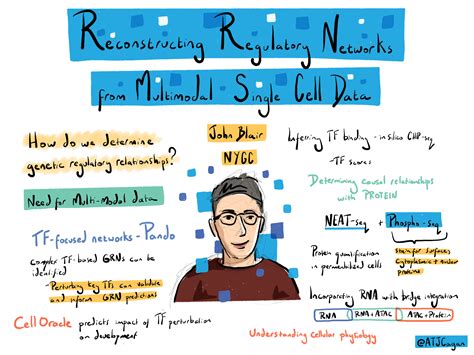 Reconstructing Regulatory Networks
from Multimodal Single Cell Data
How do we determine
genetic regulatory relationships?
Need for Multi-Modal data
TF-focused networks - Pando
complex TF-based GRNs can be
identified
- Perturbing key TFs can validate
and inform GRN predictions
Cell Oracle predicts impact of TF perturbation
on development
John Blair
NYGC
Inferring TF binding - in silico ChIP-seq
- TF scores
Determining causal relationships
with PROTEIN
NEAT-seq + Phospho-seq
Protein quantification
in permeabilized cells
Stain for surface,
cytoplasmic + nuclear
proteins
Incorporating RNA with bridge integration
RNA RNA + ATAC ATAC + Protein
Understanding cellular physiology
@ATJCagan